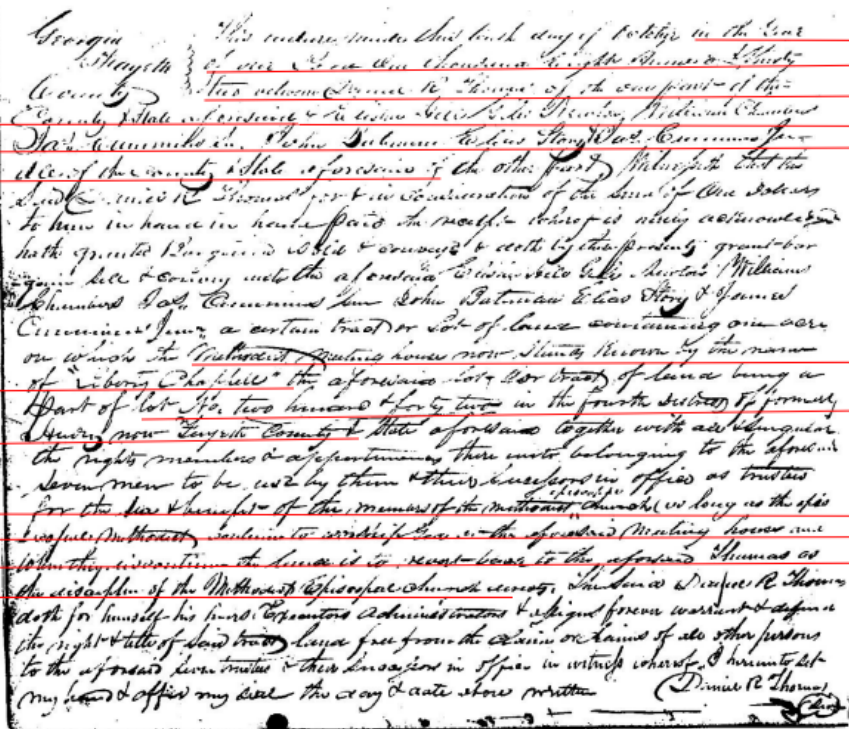 Georgia This indenture made this tenth day of October in the Year
Fayette of our Lord One thousand Eight Hundred & Thirty
County Two between Daniel R Thomas of the one part of the
County & State aforesaid & Giles Newton William Chambers
Jas. Cummins John Bateman Elias Story & Jas. Cummins Ju-
all of the county & State aforesaid of the other part Witnesseth that the
Said Daniel R Thomas for & in consideration of the sum of One Dollars
to him in hand in hand paid the receipt whereof is acknowledged
hath granted Bargained Sold & conveyed & doth by these presents grant bar
gain sell & convey unto the aforesaid Giles Newton William
Chambers Jas. Cummins Sen John Bateman Elias Story & James
Cummins Junr a certain tract or Lot of land containing one acre
on which the Methodist meeting house now Stands Known by the name
of "Liberty Chappell" the aforesaid lot or tract of land being a
Part of lot No. two hundred & forty two in the fourth District of formerly
Henry now Fayette County & State aforesaid together with all & singular
the rights members & appurtenances there unto belonging to the aforesaid
Seven men to be used by them & their Successors in office as trustees
for the use & benefit of the members of the methodist episcopal church as long as the epis
copal Methodist continue to worship God in the aforesaid Meeting house and
when they the land is to revert back to the aforesaid Thomas as
the discipline of the Methodist Episcopal church directs. The said Daniel R Thomas
doth for himself his heirs Executors Administrators & assigns forever warrant & defend
the right & title of said tract land free from the claim or claims of all other persons
to the aforesaid seven trustees & their Successors in office in witness whereof I hereunto set
my hand & affix my seal the day & date above written Daniel R Thomas